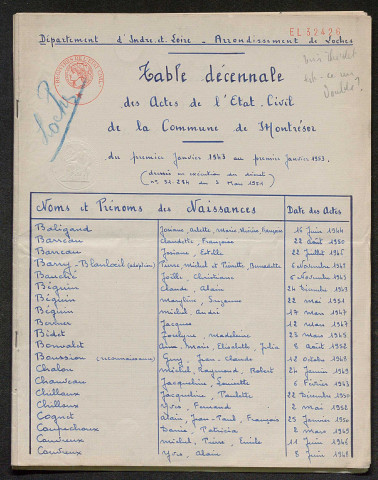 EL 52426
Département d'Indre et Loire _ Arrondissement de Loches
Table décennale
des Actes de l'Etat-Civil
de la Commune de Montrésor
du premier Janvier 1943 au premier Janvier 1953.
(dressée en exécution du décret)
Noms et Prénoms des Naissances Dates des Actes
Baligand 1944
Barreau Claudette, Françoise 22 août 1950
Barreau Josiane, Estelle 22 Juillet 1945
Barry Pierre Michel et Pierrette, Bernadette 6 Novembre 1947
Bauché Joëlle, Christiane 6 Novembre 1943
Béguin Claude, Alain 24 Décembre 1943
Béguin Marylène, Suzanne 22 mai 1951
Béguin Michel, André 17 mars 1947
Jacques 12 mars 1947
Bidet Jocelyne, Madeleine 23 mars
Bonvalet Anne-Marie, Elisabeth, Julia 8 août 1952
Boussion (reconnaissance) Guy, Jean-Claude 12 Octobre 1948
Chalou Michel, Raymond, Robert 24 Janvier 1949
Chauveau Jacqueline, 8 Février 1943
Chilloux Jacqueline, Paulette 22 Décembre 1950
Chilloux Yves, Fernand 2 mai 1952
Coquet Alain, Jean-Paul, François 25 Janvier 1950
Danie, Patricia 2 mars 1949
Couvreux Michel, Pierre, Emile 11 Juin 1946
Couvreux Yves, Alain 8 Juin 1948